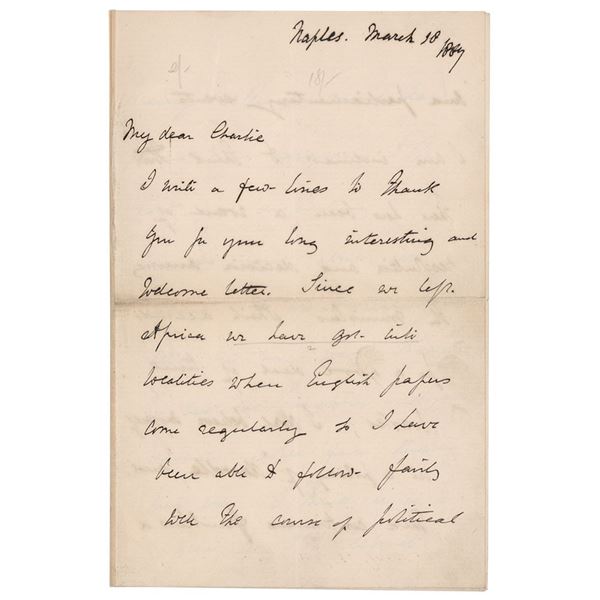 Naples. March 18
1887
2/-
18/-
My dear Charlie
I write a few lines to thank
you for your long interesting and
welcome letter. Since we left
Africa we have got into
localities when English papers
come regularly so I have
been able to follow fairly
well the course of political